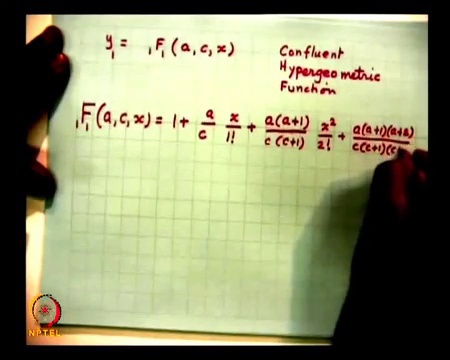 y₁ = ₁F₁ (a, c, x)
Confluent
Hypergeometric
Function
₁F₁(a, c, x) = 1 + a/c x/1! + a(a+1)/c(c+1) x²/2! + a(a+1)(a+2)/c(c+1)(c+
NPTEL